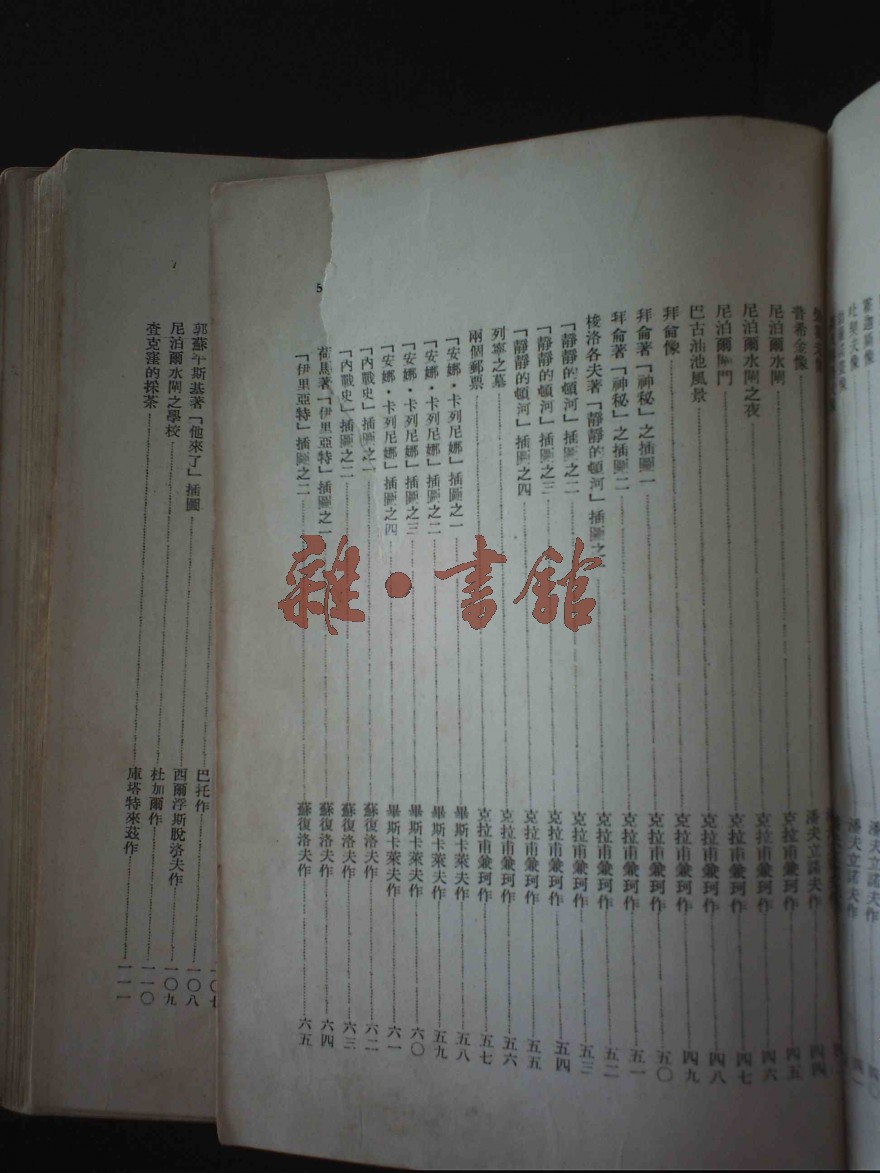 潘夫立諾夫作 四〇
潘夫立諾夫作
普希金像 潘夫立諾夫作 四四
尼泊爾水閘 克拉甫兼珂作 四五
尼泊爾水閘之夜 克拉甫兼珂作 四六
尼泊爾閘門 克拉甫兼珂作 四七
巴古油池風景 克拉甫兼珂作 四八
拜侖像 克拉甫兼珂作 四九
拜侖著「神秘」之插圖一 克拉甫兼珂作 五〇
拜侖著「神秘」之插圖二 克拉甫兼珂作 五一
梭洛各夫著「靜靜的頓河」插圖之一 克拉甫兼珂作 五二
「靜靜的頓河」插圖之二 克拉甫兼珂作 五三
「靜靜的頓河」插圖之三 克拉甫兼珂作 五四
「靜靜的頓河」插圖之四 克拉甫兼珂作 五五
列寧之墓 克拉甫兼珂作 五六
兩個郵票 克拉甫兼珂作 五七
「安娜·卡列尼娜」插圖之一 畢斯卡萊夫作 五八
「安娜·卡列尼娜」插圖之二 畢斯卡萊夫作 五九
「安娜·卡列尼娜」插圖之三 畢斯卡萊夫作 六〇
「安娜·卡列尼娜」插圖之四 畢斯卡萊夫作 六一
「內戰史」插圖之一 蘇復洛夫作 六二
「內戰史」插圖之二 蘇復洛夫作 六三
荷馬著「伊里亞特」插圖之一 蘇復洛夫作 六四
「伊里亞特」插圖之二 蘇復洛夫作 六五
5
一〇七
巴托作 一〇八
郭蘇午斯基著「他來了」插圖 西爾浮斯脫洛夫作 一〇九
尼泊爾水閘之學校 杜加爾作 一一〇
查克窪的採茶 庫塔特來茲作 一一一
雜·書館